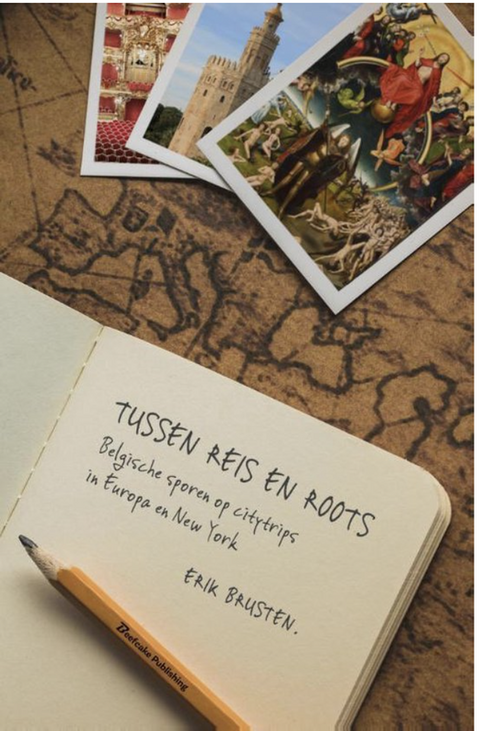 TUSSEN REIS EN ROOTS
Belgische sporen op citytrips
in Europa en New York
ERIK BRUSTEN.
Beefcake Publishing